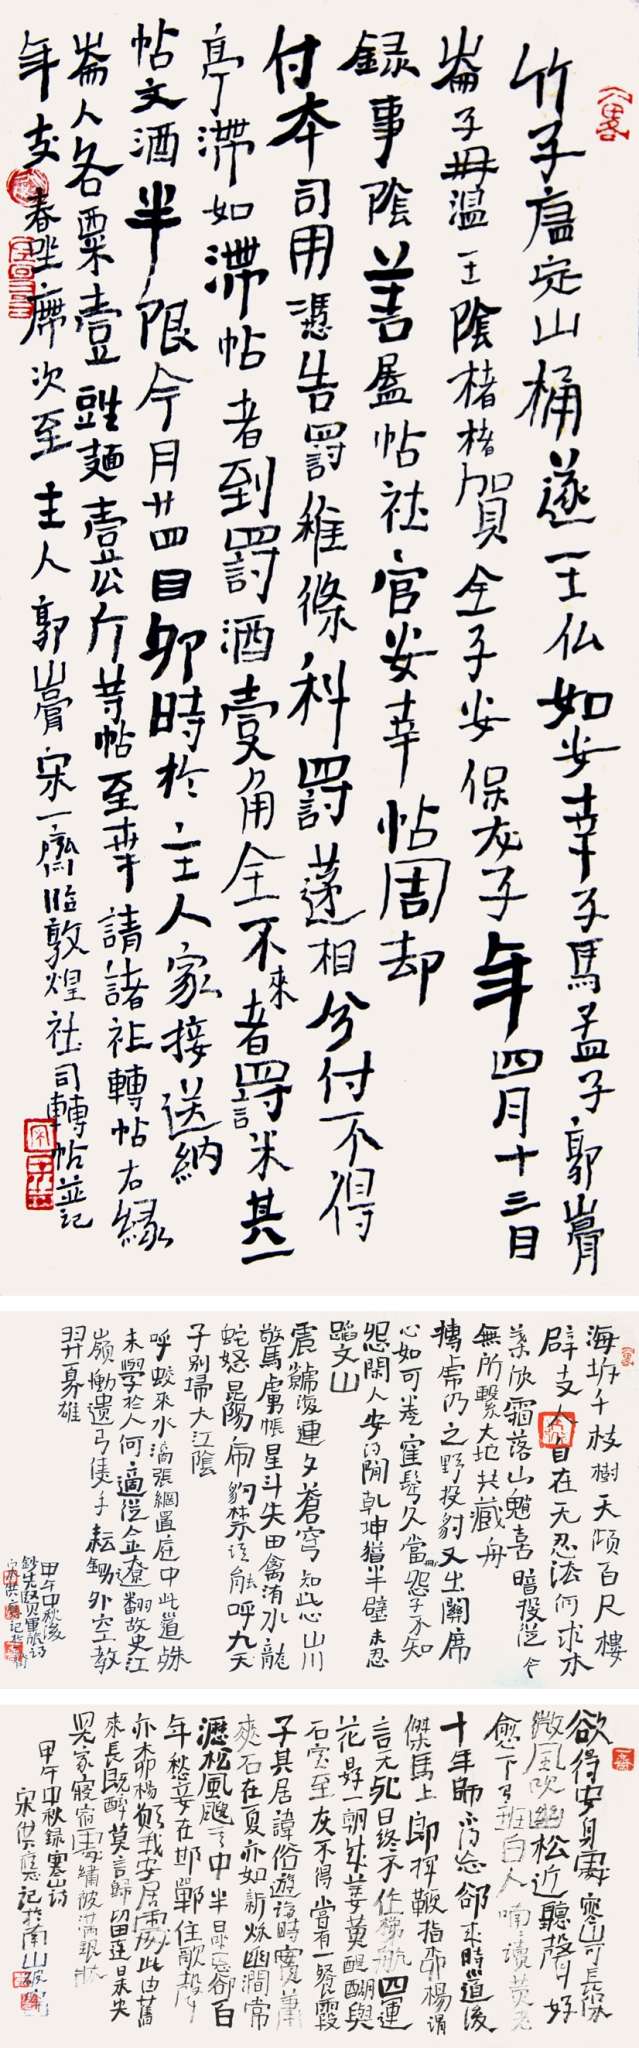 竹子盧定山桶遂王仏如安幸子馬盈子郭山膏
崙子毋溫王陰楮楮賀全子安保友子年四月十三日
録事陰善屋帖社官安幸帖周却
付本司用憑告罰稚條科罰遂相分付不得
亭滯如滯帖者到罰酒壹角全不來者罰米其一
帖文酒半限今月廿四日卯時於主人家接送納
崙人各粟壹䜴麵壹斤等帖至幸請諸社轉帖右緣
年支春坐席次至主人郭山膏宋一齋臨敦煌社司轉帖並記
海圻千枝樹天傾百尺樓
辟支人自在无忍法何求木
葉欣霜落山魈喜暗投從今
無所繫大地共藏舟
搏虎仍之野投豹又出關席
心如可卷窪髩久當刪怨子不知
怨閑人安得閒乾坤猶半壁未忍
蹈文山
震蕩復連夕蒼穹知此心山川
驚馬虜帳星斗失田禽洧水龍
蛇怒昆陽虎豹禁誰能呼九天
子別掃大江陰
呼蛟來水滴張網置庭中此道殊
未學於人何適從金遼翻故史江
嶺慟遺弓隻手耘鋤外空教
羿奡雄
甲午中秋後
欲得安身處寒山可長保
微風吹幽松近聽聲好
愈下有班白人喃喃讀黃老
十年歸不得忘卻來時道後
傑馬上郎揮鞭指柳楊謂
言无死日終不作梯航四運
花是好一朝成萎黃醍醐與
石蜜至死不得嘗有一餐霞
子其居諱俗遊論時實蕭
爽石在夏亦如新秋幽澗常
瀝瀝松風颼颼中半日忘卻百
年愁妾在邯鄲住歌聲
亦抑揚賴我安居處此曲舊
來長既醉莫言歸留連日未央
兒家寢宿處繡被滿銀牀
甲午中秋録寒山詩
宋洪應記於南山